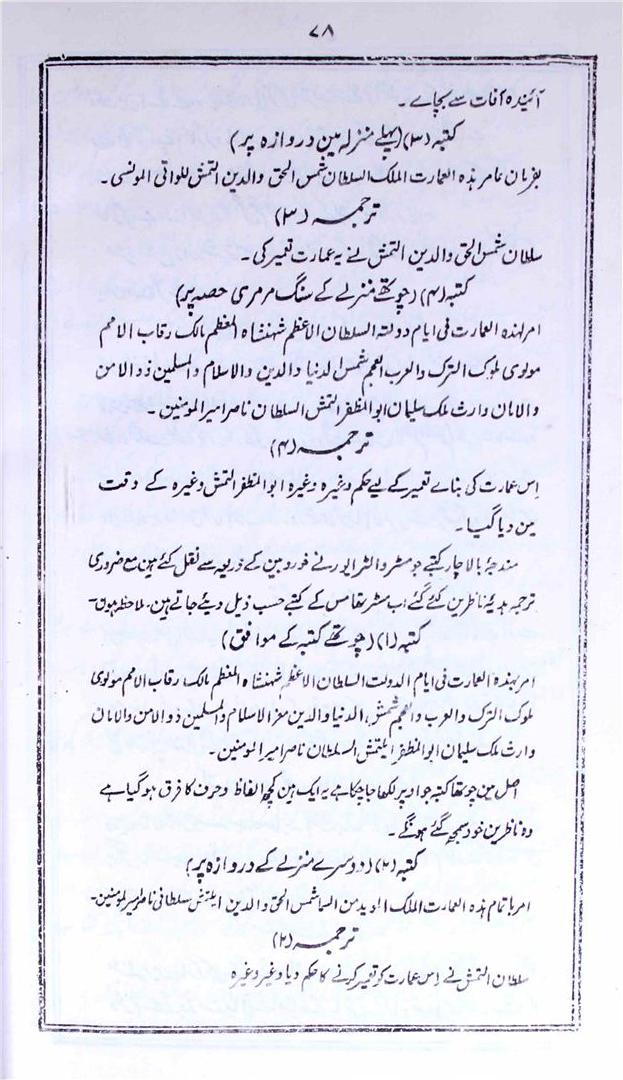 ۷۸
آئندہ آفات سے بچاے۔
کتبہ (۳) (پہلے منزلہ مین دروازہ پر)
بفرمان عامر ہذہ العمارت الملک السلطان شمس الحق والدین التمش للواتی المونسی۔
ترجمہ (۳)
سلطان شمس الحق والدین التمش نے یہ عمارت تعمیر کی۔
کتبہ (۴) (چوتھے منزلے کے سنگ مرمری حصہ پر)
امر لہذہ العمارت فی ایام دولتہ السلطان الاعظم شہنشاہ المعظم مالک رقاب الامم
مولوی ملوک الترک والعرب العجم شمس الدنیا والدین والاسلام والمسلمین ذو الامن
والامان وارث ملک سلیمان ابو المظفر التمش السلطان ناصر امیر المومنین۔
ترجمہ (۴)
اِس عمارت کی بناے تعمیر کے لیے حکم وغیرہ وغیرہ ابو المظفر التمش وغیرہ کے وقت
مین دیا گیا۔
مندرجۂ بالا چار کتبے جو مسٹر والٹر ایور نے خوردبین کے ذریعہ سے نقل کئے ہین مع ضروری
ترجمہ ہدیۂ ناظرین کئے گئے اب مسٹر تھامس کے کتبے حسب ذیل دیئے جاتے ہین۔ ملاحظہ ہون۔
کتبہ (۱) (چوتھے کتبہ کے موافق)
امر بہذہ العمارت فی ایام الدولت السلطان الاعظم شہنشاہ المعظم مالک رقاب الامم مولوی
ملوک الترک والعرب والعجم شمش، الدنیا والدین معز الاسلام والمسلمین ذو الامن والامان
وارث ملک سلیمان ابو المظفر ایلتمش السلطان ناصر امیر المومنین۔
اصل مین چوتھا کتبہ جو اوپر لکھا جا چکا ہے یہ ایک ہین کچھ الفاظ وحروف کا فرق ہو گیا ہے
وہ ناظرین خود سمجھ گئے ہونگے۔
کتبہ (۲) (دوسرے منزلے کے دروازہ پر)
امر باتمام ہذہ العمارت الملک من السما شمس الحق والدین ایلتمش سلطانی ناصر امیر المومنین۔
ترجمہ (۲)
سلطان التمش نے اِس عمارت کو تعمیر کرنے کا حکم دیا وغیرہ وغیرہ